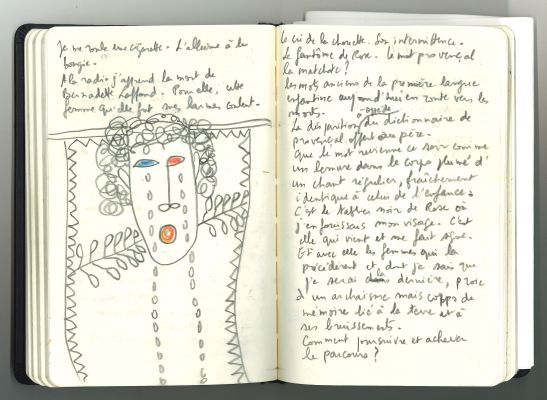 Je me roule une cigarette. L'allume à la
bougie.
A la radio j'apprend la mort de
Bernadette Laffont. Pour elle, cette
femme qu'elle fut mes larmes coulent.
Le cri de la chouette. Son intermittence.
Le fantôme de Rose. Le mot provençal
la machote ?
les mots anciens de la première langue
enfantine aujourd'hui en route vers les
morts.
La disparition du dictionnaire de
provençal offert au père.
Que le mot revienne ce soir comme
un lemure dans le corps plumé d'
un chant régulier, fraîchement
identique à celui de l'enfance.
C'est le tablier noir de Rose où
j'enfouissais mon visage. C'est
elle qui vient et me fait signe.
Et avec elle les femmes qui la
précédèrent et, dont je sais que
je serai la dernière, proie
d'un archaïsme mais corps de
mémoire lié à la terre et à
ses bruissements.
Comment poursuivre et achever
le parcours ?